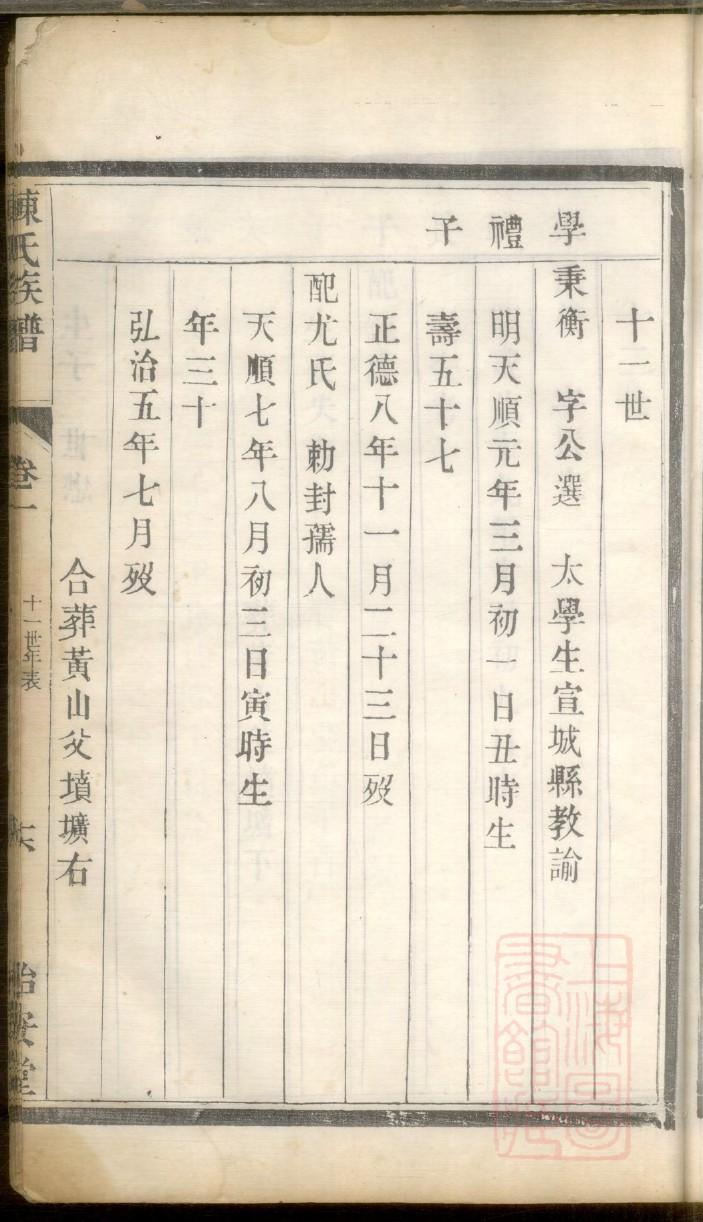 十一世
學禮子
秉衡　字公選　太學生宣城縣教諭
明天順元年三月初一日丑時生
壽五十七
正德八年十一月二十三日歿
配尤氏　勅封孺人
天順七年八月初三日寅時生
年三十
弘治五年七月歿
合葬黃山父墳壙右
陳氏族譜
卷一
十一世年表
上海圖書館藏